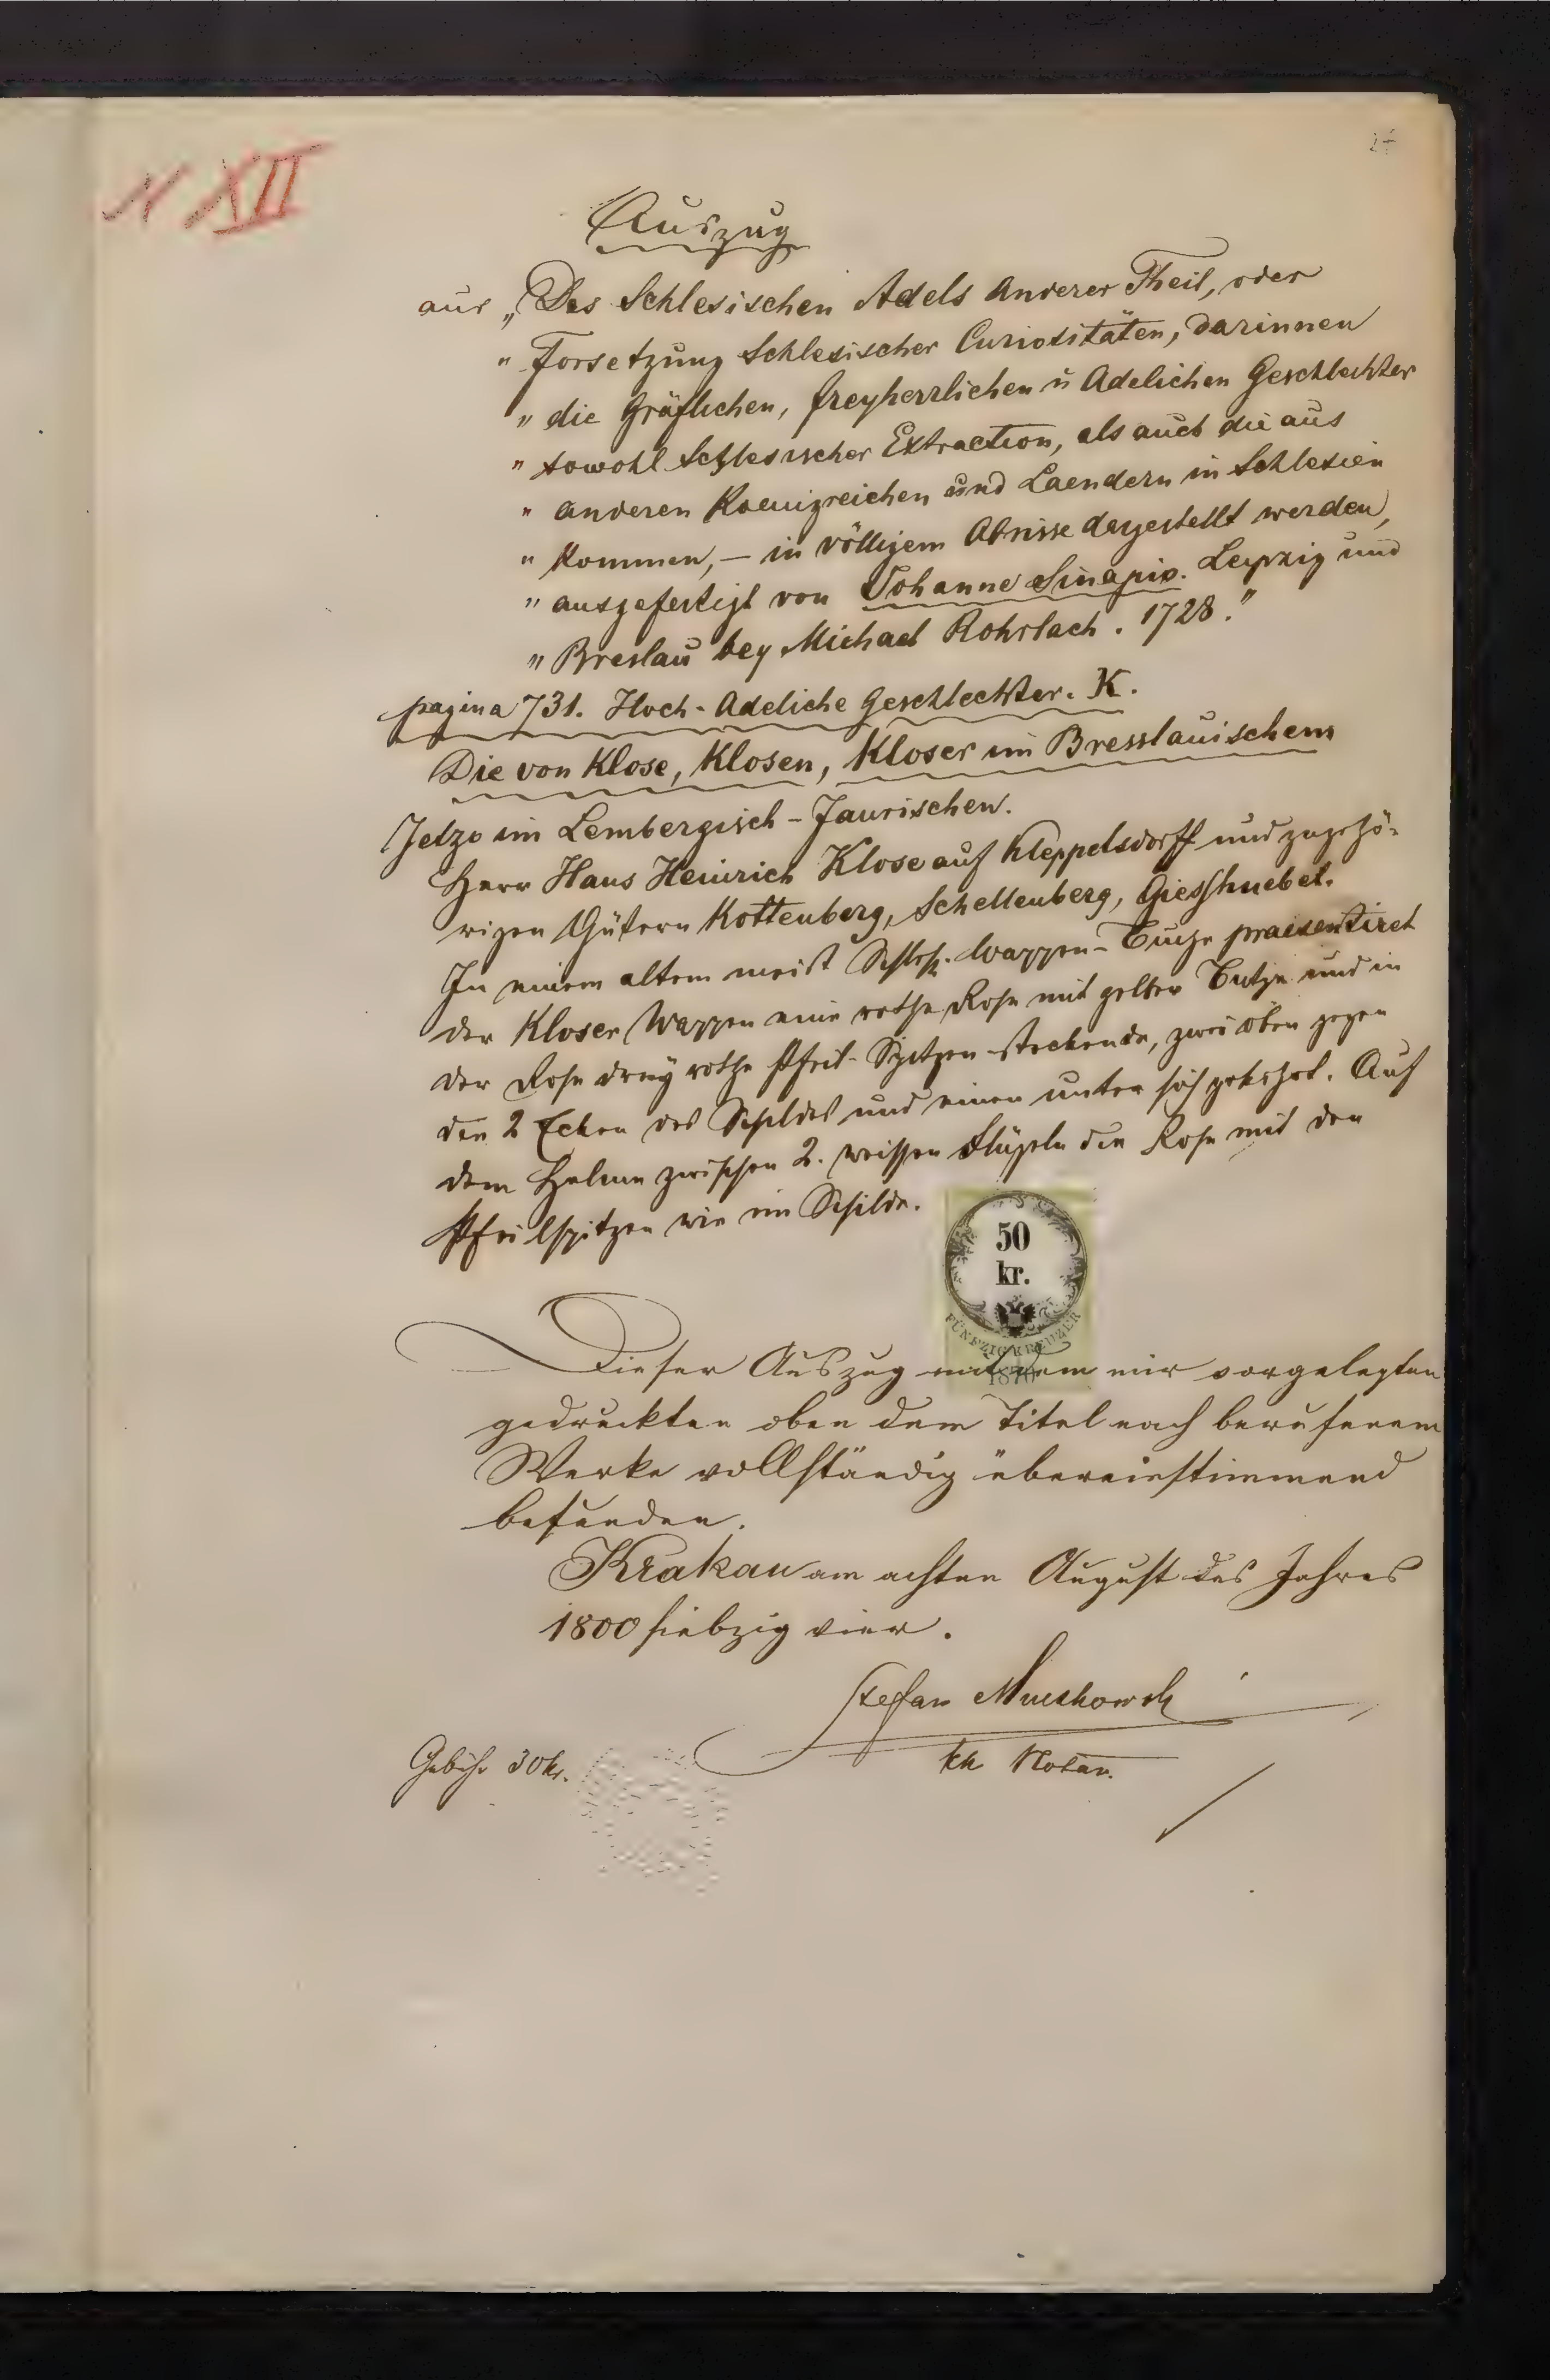 N XII
24
Auszug
aus „Des Schlesischen Adels Anderer Theil, oder
" Forsetzung Schlesischer Curiositäten, darinnen
" die Gräflichen, freyherrlichen u Adelichen Geschlechter
" sowohl Schlesischer Extraction, als auch die aus
" anderen Koenigreichen und Laendern in Schlesien
" kommen, – in völligem Abrisse dargestellt werden,
" ausgefertigt von Johanne Sinapio. Leipzig und
" Breslau bey Michael Rohrlach. 1728."
pagina 731. Hoch-Adeliche Geschlechter. K.
Die von Klose, Klosen, Kloser im Bresslauischem
Jetzo im Lembergisch-Jaurischen.
Herr Hans Heinrich Klose auf Kleppelsdorff und zugehö-
rigen Gütern Kottenberg, Schellenberg, Giesshuebel.
In einem altem meist Schles. Wappen- praesentiret
der Kloser Wappen eine rothe Rose mit gelber Butze und in
der Rose drey rothe Pfeil-Spitzen steckende, zwei oben gegen
den 2 Ecken des Schildes und einen unter sich gekehrt. Auf
dem Helme zwischen 2. weissen Flügeln die Rose mit den
Pfeilspitzen wie im Schilde.
50
kr.
FÜNFZIG KREUZER
1870
Dieser Auszug mit dem mir vorgelegten
gedruckten oben dem Titel nach berufenem
Werke vollständig übereinstimmend
befunden.
Krakau am achten August des Jahres
1800 siebzig vier.
Stefan Muczkowski
kk Notar.
Gebühr 30 kr.